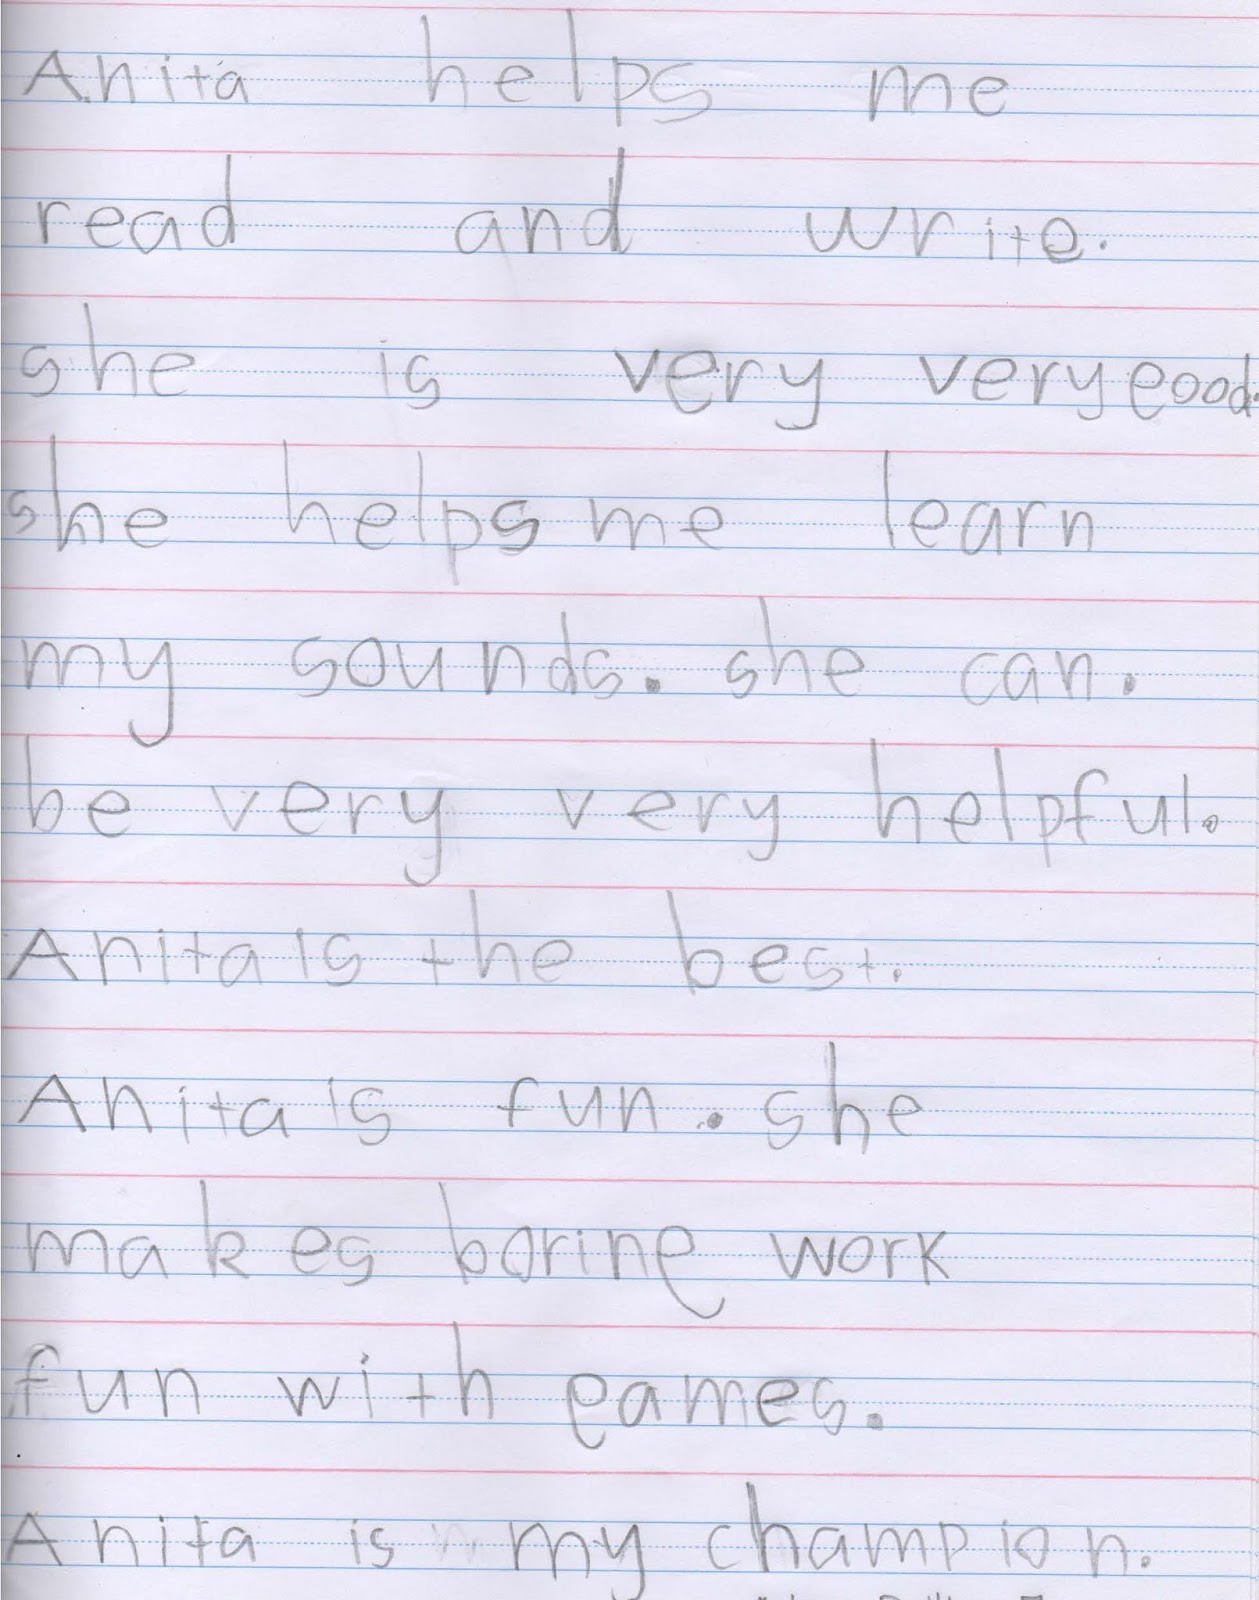 Anita helps me
read and write.
she is very very good.
she helps me learn
my sounds. she can.
be very very helpful.
Anita is the best.
Anita is fun. she
makes boring work
fun with games.
Anita is my champion.